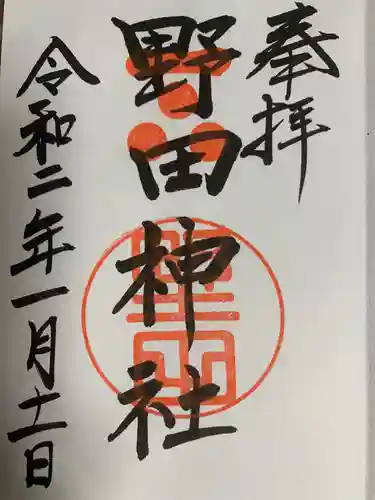 奉拝
野田神社
令和二年一月十一日